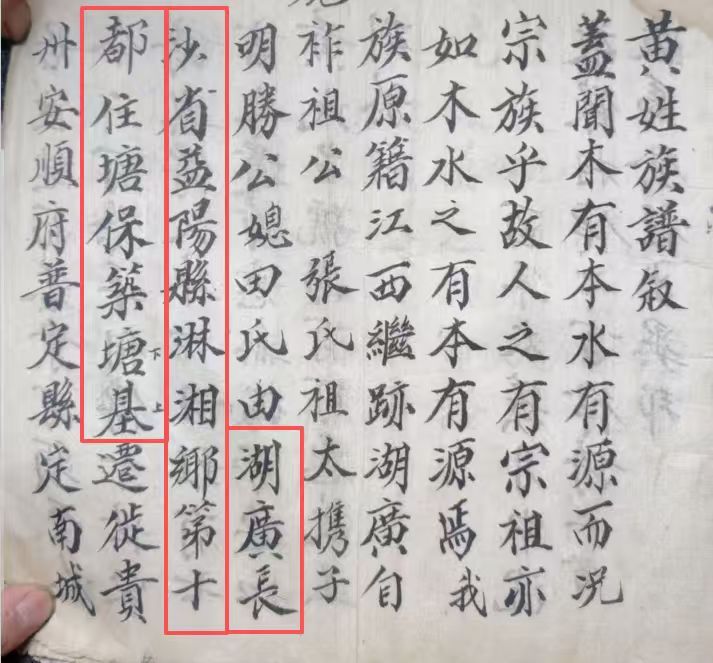 黄姓族譜叙
蓋聞木有本水有源而况
宗族乎故人之有宗祖亦
如木水之有本有源焉我
族原籍江西繼跡湖廣自
祚祖公張氏祖太携子
明勝公媳田氏由湖廣長
沙省益陽縣淋湘鄉第十
都住塘保築塘下基上遷徙貴
州安順府普定縣定南城